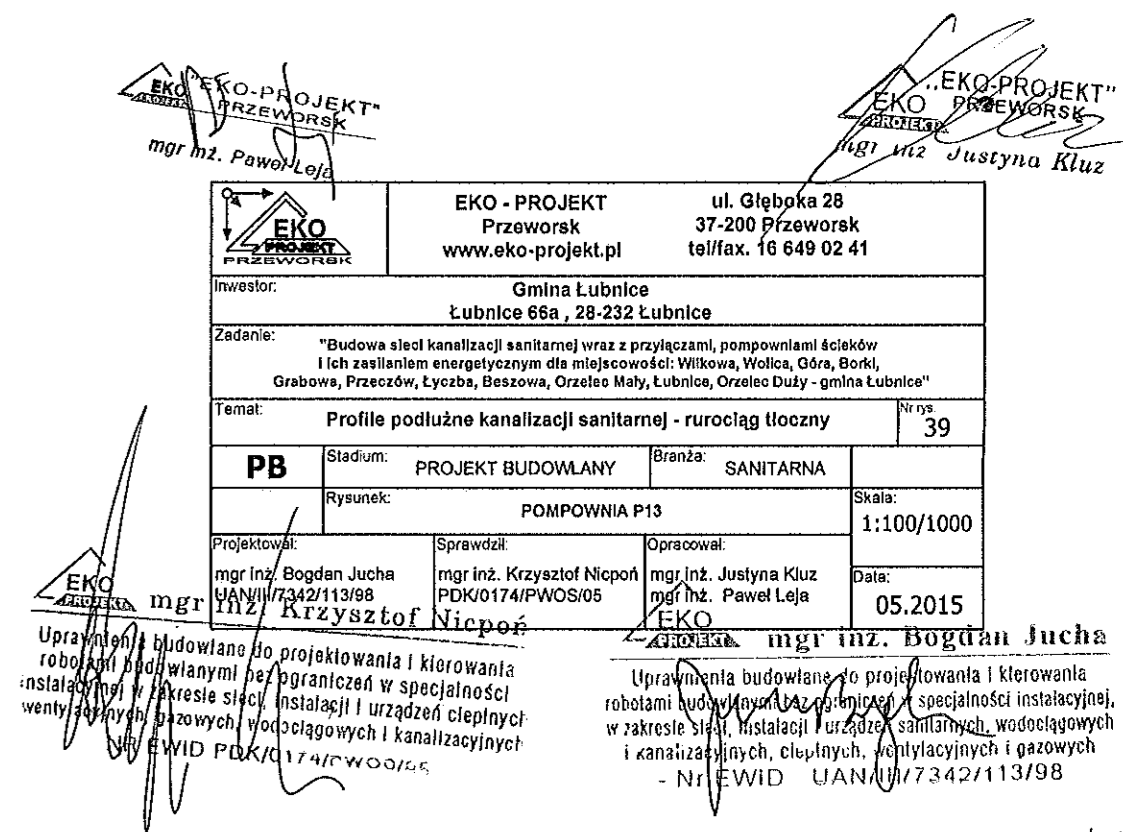 EKO PROJEKT
"EKO-PROJEKT"
PRZEWORSK
mgr inż. Paweł Leja
EKO PROJEKT
,,EKO-PROJEKT"
PRZEWORSK
mgr inż Justyna Kluz
EKO
PROJEKT
PRZEWORSK
EKO - PROJEKT
Przeworsk
www.eko-projekt.pl
ul. Głęboka 28
37-200 Przeworsk
tel/fax. 16 649 02 41
Inwestor:
Gmina Łubnice
Łubnice 66a , 28-232 Łubnice
Zadanie:
"Budowa sieci kanalizacji sanitarnej wraz z przyłączami, pompowniami ścieków
i ich zasilaniem energetycznym dla miejscowości: Wilkowa, Wolica, Góra, Borki,
Grabowa, Przeczów, Łyczba, Beszowa, Orzelec Mały, Łubnice, Orzelec Duży - gmina Łubnice"
Temat:
Profile podłużne kanalizacji sanitarnej - rurociąg tłoczny
Nr rys.
39
PB
Stadium:
PROJEKT BUDOWLANY
Branża:
SANITARNA
Rysunek:
POMPOWNIA P13
Skala:
1:100/1000
Projektował:
mgr inż. Bogdan Jucha
UAN/III/7342/113/98
Sprawdził:
mgr inż. Krzysztof Nicpoń
PDK/0174/PWOS/05
Opracował:
mgr inż. Justyna Kluz
mgr inż. Paweł Leja
Data:
05.2015
EKO PROJEKT
mgr inż. Krzysztof Nicpoń
Uprawnienia budowlane do projektowania i kierowania
robotami budowlanymi bez ograniczeń w specjalności
instalacyjnej w zakresie sieci, instalacji i urządzeń cieplnych
wentylacyjnych, gazowych, wodociągowych i kanalizacyjnych
NR EWID PDK/0174/PWOS/05
EKO PROJEKT
mgr inż. Bogdan Jucha
Uprawnienia budowlane do projektowania i kierowania
robotami budowlanymi bez ograniczeń w specjalności instalacyjnej,
w zakresie sieci, instalacji i urządzeń sanitarnych, wodociągowych
i kanalizacyjnych, cieplnych, wentylacyjnych i gazowych
- Nr EWID UAN/III/7342/113/98